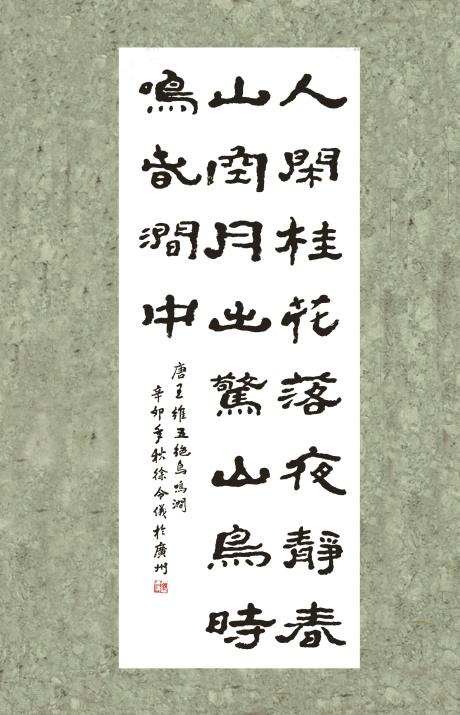 人閑桂花落夜靜春
山空月出驚山鳥時
鳴春澗中
唐王維五絕鳥鳴澗
辛卯年秋徐令儀於廣州